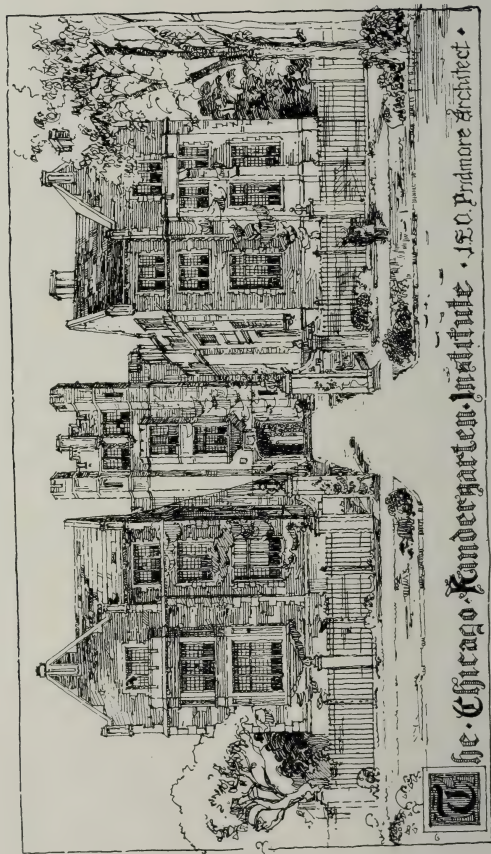 The · Chicago · Kindergarten · Institute · J.E.O. Pridmore Architect ·